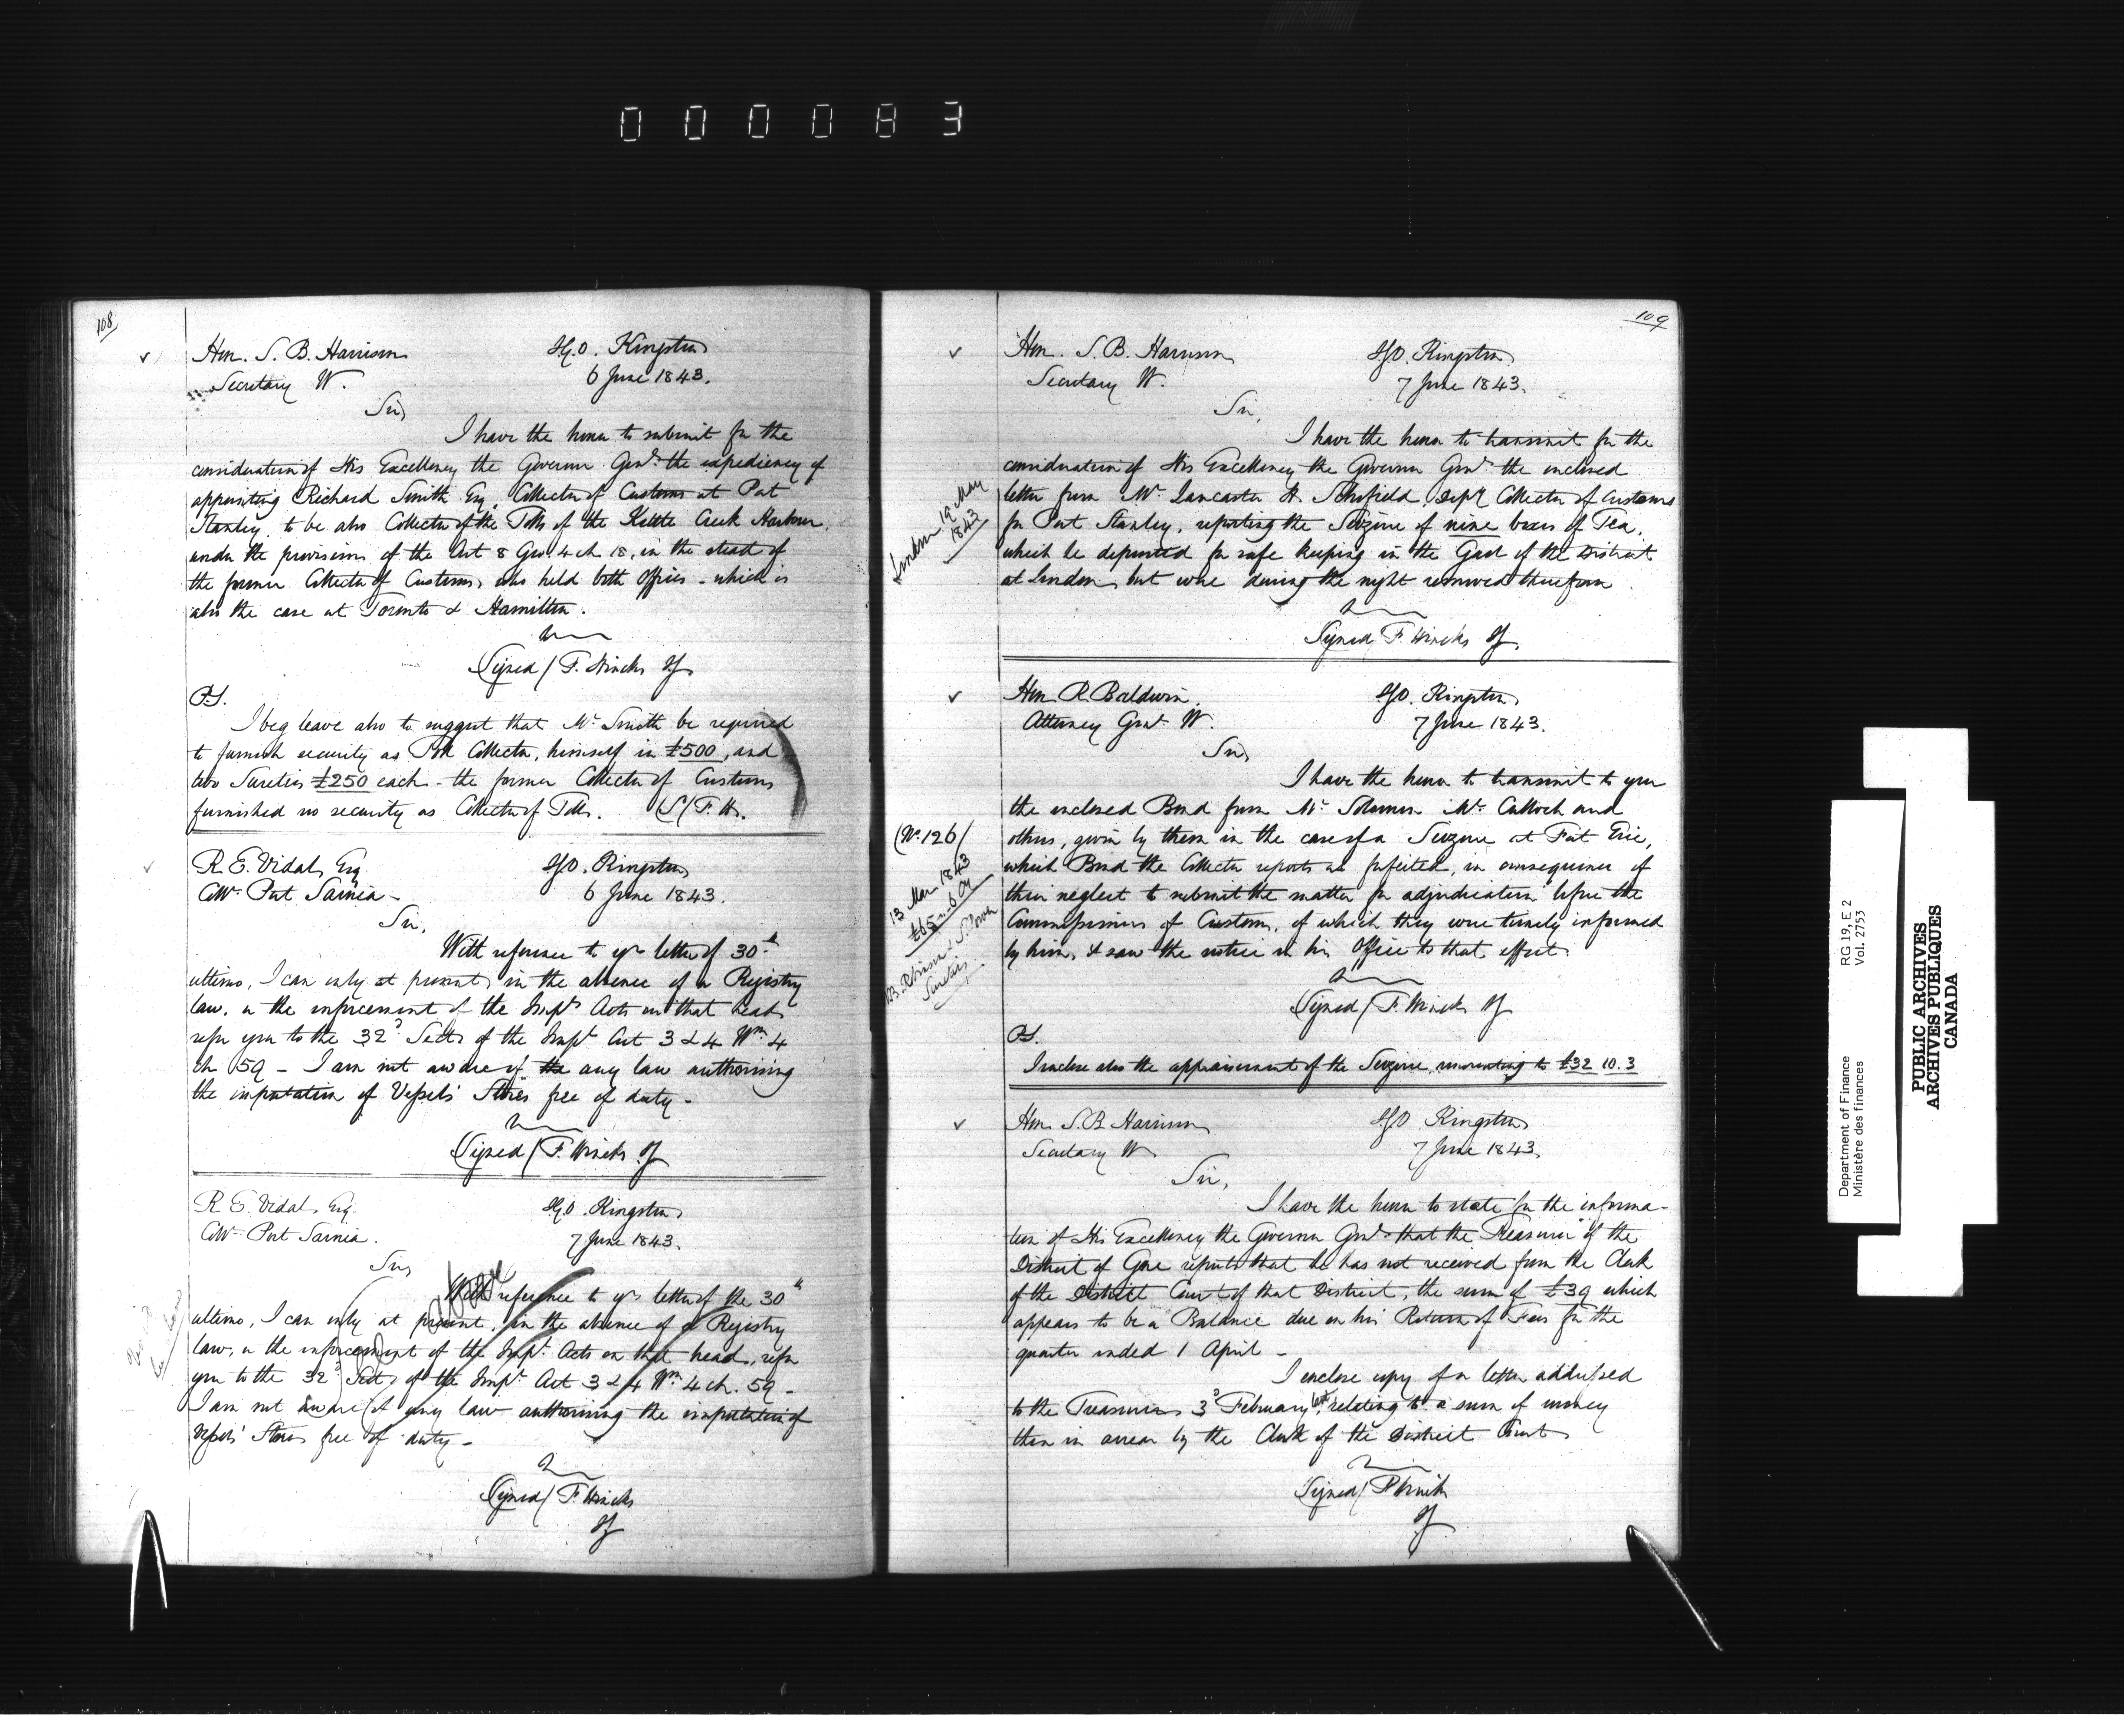 000083
108
Hon. S. B. Harrison
Secretary W.
I.G.O. Kingston
6 June 1843.
Sir,
I have the honor to submit for the
consideration of His Excellency the Governor Genl. the expediency of
appointing Richard Smith Esq. Collector of Customs at Port
Stanley, to be also Collector of the Tolls of the Kettle Creek Harbour,
under the provisions of the Act 8 Geo. 4 ch 18, in the stead of
the former Collector of Customs, who held both offices - which is
also the case at Toronto & Hamilton.
Signed / F. Hincks IG
P.S.
I beg leave also to suggest that Mr. Smith be required
to furnish security as Toll Collector, himself in £500, and
two Sureties £250 each - the former Collector of Customs
furnished no security as Collector of Tolls. (S/ F. H.
R. E. Vidal, Esq
Collr. Port Sarnia -
I.G.O. Kingston
6 June 1843.
Sir,
With reference to yr letter of 30th
ultimo, I can only at present, in the absence of a Registry
law, or the inforcement of the Impl. Acts on that head,
refer you to the 32d Sect. of the Impl. Act 3 & 4 Wm. 4
ch 59 - I am not aware of the any law authorising
the importation of Vessels' Stores free of duty -
Signed / F. Hincks IG
R. E. Vidal, Esq.
Collr. Port Sarnia.
I.G.O. Kingston
7 June 1843.
Sir,
With reference to yr. letter of the 30th
ultimo, I can only at present, in the absence of a Registry
law, or the inforcement of the Impl. Acts on that head, refer
you to the 32d Sect. of the Impl. Act 3 & 4 Wm. 4 ch. 59 -
I am not aware of any law authorising the importation of
Vessels' Stores free of duty -
Signed / F. Hincks
IG
109
Hon. S. B. Harrison
Secretary W.
I.G.O. Kingston
7 June 1843.
Sir,
London 19 May
1843
I have the honor to transmit for the
consideration of His Excellency the Governor Genl. the inclosed
letter from Mr. Lancaster H. Schofield, Depy. Collector of Customs
for Port Stanley, reporting the Seizure of nine boxes of Tea,
which he deposited for safe keeping in the Gaol of the District
at London, but were during the night removed therefrom.
Signed F. Hincks IG
Hon. R. Baldwin
Attorney Genl. W.
I.G.O. Kingston
7 June 1843.
Sir,
(No. 126/
13 Mar 1843
Sureties
I have the honor to transmit to you
the inclosed Bond from Mr. Solomon Mc. Culloch and
others, given by them in the case of a Seizure at Fort Erie,
which Bond the Collector reports as forfeited, in consequence of
their neglect to submit the matter for adjudication before the
Commissioners of Customs, of which they were timely informed
by him, & saw the notice in his Office to that effect.
Signed / F. Hincks IG
P.S.
I inclose also the appraisement of the Seizure, amounting to £32 10. 3
Hon. S. B. Harrison
Secretary W
I.G.O. Kingston
7 June 1843.
Sir,
I have the honor to state for the informa-
tion of His Excellency the Governor Genl. that the Treasurer of the
District of Gore reports that he has not received from the Clerk
of the District Court of that District, the sum of £39 which
appears to be a Balance due on his Return of Fees for the
quarter ended 1 April -
I enclose copy of a letter addressed
to the Treasurer 3d February last, relating to a sum of money
then in arrear by the Clerk of the District Court
Signed / F Hincks
IG
Department of Finance
Ministère des finances
RG 19, E 2
Vol. 2753
PUBLIC ARCHIVES
ARCHIVES PUBLIQUES
CANADA